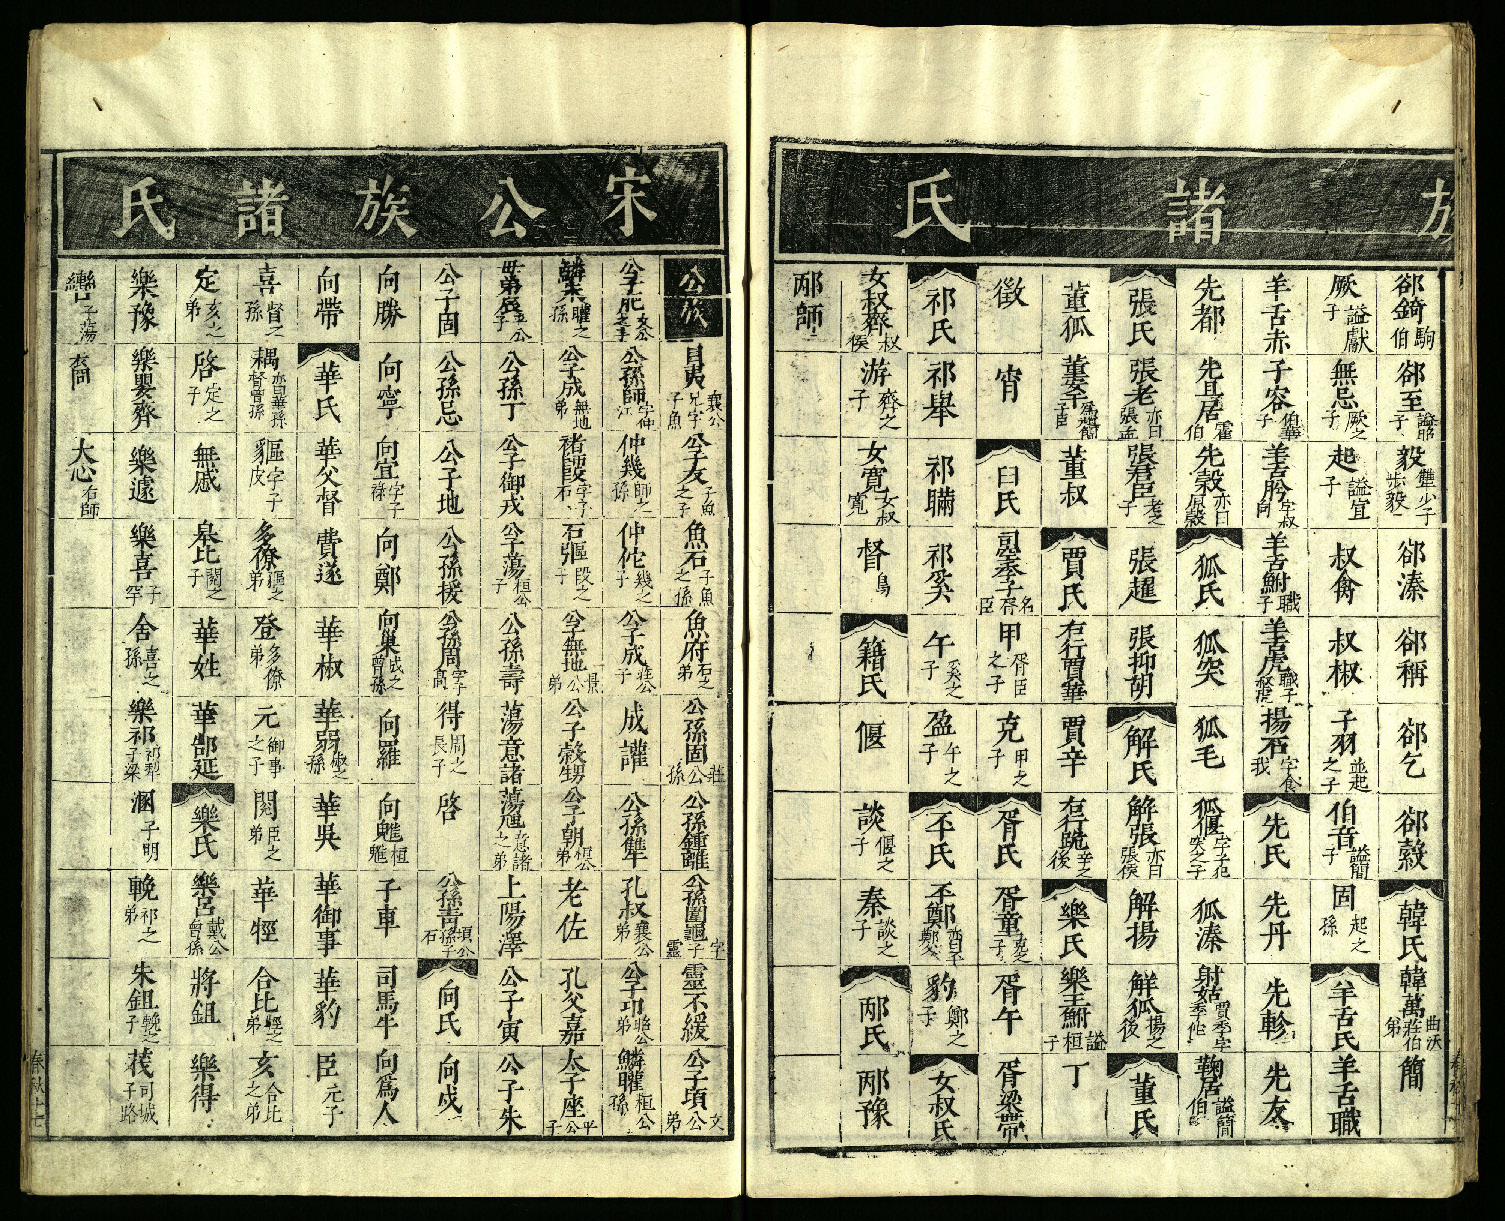 族諸氏
郤錡 駒伯
郤至 謚昭子
毅 犨少子 步毅
郤溱
郤稱
郤乞
郤縠
韓氏
韓萬 曲沃莊伯弟
簡
厥 謚獻子
無忌 厥之子
起 謚宣子
叔禽
叔椒
子羽 並起之子
伯音 謚簡子
固 起之孫
羊舌氏
羊舌職
羊舌赤
子容 伯華子
羊舌肸 字叔向
羊舌鮒 職子
羊舌虎 職子 叔羆
揚石 字食我
先氏
先丹
先軫
先友
先都
先且居 霍伯
先縠 亦曰原縠
狐氏
狐突
狐毛
狐偃 字子犯 突之子
狐溱
射姑 賈季字季佗
鞠居 謚簡伯
張氏
張老 亦曰張孟
張君臣 老之子
張趯
張抑朔
解氏
解張 亦曰張侯
解揚
解狐 揚之後
董氏
董狐
董叔
賈氏
右行賈華
賈辛
右行詭 辛之後
樂氏
樂王鮒 謚桓子
丁
徵
甯
臼氏
司空季子 名胥臣
甲 胥臣之子
克 甲之子
胥氏
胥童 克之子
胥午
胥梁帶
祁氏
祁舉
祁瞞
祁奚
午 奚之子
盈 午之子
丕氏
丕鄭
豹 鄭之子
女叔氏
女叔齊 叔侯
游 齊之子
女寬 女叔寬
督 烏
籍氏
偃
談 偃之子
秦 談之子
邴氏
邴豫
邴師
宋公族諸氏
公族
目夷 襄公兄字子魚
公子友 子魚之子
魚石 子魚之孫
魚府 石之弟
公孫固 莊公孫
公孫鍾離
公孫圍龜 字子靈
靈不緩
公子須 文公弟
公子肥 文公
公孫師 字仲江
仲幾 師之孫
仲佗 幾之子
公子成 莊公子
成讙
公孫隼
孔叔 襄公弟
公子卬 昭公弟
鱗矔 桓公孫
鱗朱 矔之孫
公子成 無地弟
褚師段 字子石
石彄 段之子
公子無地 景公弟
公子穀甥
公子朝 桓公弟
老佐
孔父嘉
太子座 平公子
母弟辰 元公子
公孫丁
公子御戎
公子蕩 桓公子
公孫壽
蕩意諸
蕩虺 意諸之弟
上陽澤
公子寅
公子朱
公子固
公孫忌
公子地
公孫援
公孫周 字子高
得 周之長子
啓
公孫青 頃公孫子石
向氏
向戌
向勝
向寧
向宜 字子祿
向鄭
向巢 戌之曾孫
向羅
向魋 桓魋
子車
司馬牛
向為人
向帶
華氏
華父督
費遂
華椒
華弱 椒之孫
華吳
華御事
華豹
臣 元子
喜 督之孫
耦 華孫 督曾孫
貙 字子皮
多僚 貙之弟
登 多僚弟
元 御事之子
閱 臣之弟
華牼
合比 牼之弟
亥 合比之弟
定 亥之弟
啓 定之子
無慼
皋比 閱之子
華姓
華郜延
樂氏
樂呂 戴公曾孫
將鉏
樂得
樂豫
樂嬰齊
樂遽
樂喜 子罕
舍 喜之孫
樂祁 祁犁 子梁
溷 子明
輓 祁之弟
朱鉏 輓之子
茷 司城子路
大心 右師